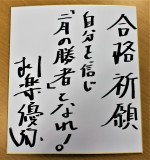 合格祈願
自分を信じ
「二月の勝者」となれ!!